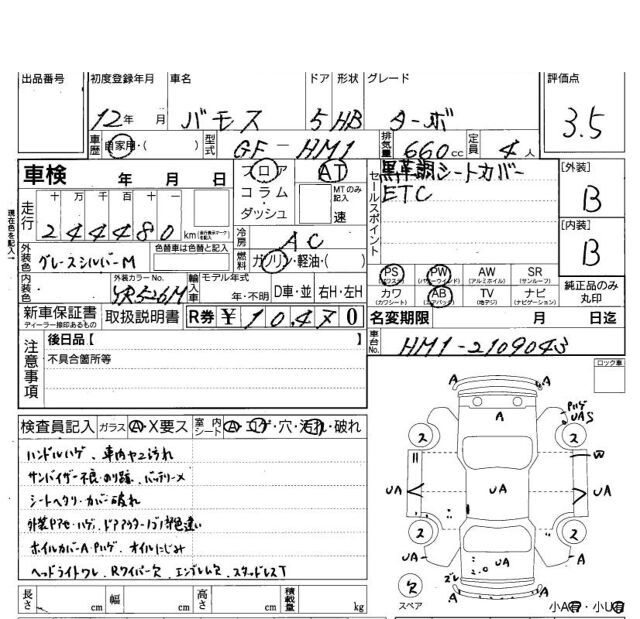 出品番号
初度登録年月 車名 ドア 形状 グレード 評価点
12年 月 バモス 5 HB ターボ 3.5
車歴 自家用・( ) 型式 GF-HM1 排気量 660cc 定員 4人
車検 年 月 日 フロア コラム・ダッシュ AT MTのみ記入 速
セールスポイント 黒革調シートカバー
ETC
[外装] B
[内装] B
現在色を記入→
走行 十万千百十一
244480 km
外装色 グレースシルバーM 色替車は色替と記入
冷房 AC
燃料 ガソリン・軽油・( )
内装色 外装カラーNo. YR526M 輸入車 モデル年式 年・不明 D車・並 右H・左H
PS (パワステ) PW (パワーウインドウ) AW (アルミホイル) SR (サンルーフ)
カワ (カワシート) AB (エアバッグ) TV (地デジ) ナビ (ナビゲーション)
純正品のみ丸印
新車保証書 ディーラー捺印あるもの 取扱説明書 R券 ¥10,470
名変期限 月 日迄
車台No. HM1-2109043
注意事項 後日品【 】
不具合箇所等
ロック車
検査員記入 ガラス A・X要ス 室内シート A・コゲ・穴・汚れ・破れ
ハンドルハゲ、車内ヤニ汚れ
サンバイザー不良・のり跡、バッテリーメ
シートヘタリ・カバー破れ
外装Pアセ・ハゲ、ドアアウターノブ1部色違い
ホイルカバーA・Pハゲ、オイルにじみ
ヘッドライトワレ、Rワイパー欠、エンブレム欠、スタッドレスT
A A
A
Pハゲ
UAS
ス ス
W
UA UA UA
ス ス
UA UA A
ズレ
2.0
A A
欠
スペア
長さ cm 幅 cm 高さ cm 積載量 kg
小A有・小U有